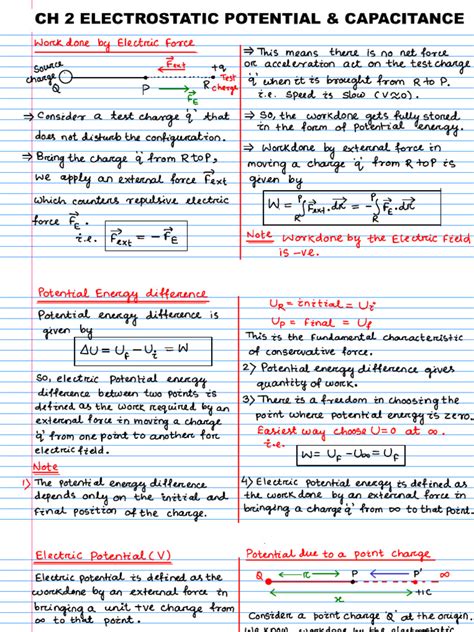 CH 2 ELECTROSTATIC POTENTIAL & CAPACITANCE
Work done by Electric Force
Source
charge
Q
P
F⃗ext
F⃗E
+q
Test
R charge
⇒ Consider a test charge 'q' that
does not disturb the configuration.
⇒ Bring the charge 'q' from R to P,
we apply an external force F⃗ext
which counters repulsive electric
force F⃗E.
i.e. F⃗ext = -F⃗E
⇒ This means there is no net force
or acceleration act on the test charge
'q' when it is brought from R to P.
i.e. Speed is slow (V≈0).
⇒ So, the workdone gets fully stored
in the form of potential energy.
⇒ Workdone by external force in
moving a charge 'q' from R to P is
given by
W = ∫ᴿᴾ F⃗ext.dr⃗ = -∫ᴿᴾ F⃗E.dr⃗
Note Workdone by the Electric field
is -ve.
Potential Energy difference
Potential energy difference is
given by
ΔU = Uf - Ui = W
So, electric potential energy
difference between two points is
defined as the work required by an
external force in moving a charge
'q' from one point to another for
electric field.
Note
1) The potential energy difference
depends only on the initial and
final position of the charge.
UR = initial = Ui
UP = final = Uf
This is the fundamental characteristic
of conservative force.
2) Potential energy difference gives
quantity of work.
3) There is a freedom in choosing the
point where potential energy is zero.
Easiest way choose U=0 at ∞.
i.e.
W = Uf - U∞ = Uf
4) Electric potential energy is defined as
the workdone by an external force in
bringing a charge 'q' from ∞ to that point.
Electric Potential (V)
Electric potential is defined as the
workdone by an external force in
bringing a unit +ve charge from
∞ to that point.
Potential due to a point charge
Q r P P' ∞
x +1C
Consider a point charge 'Q' at the origin.